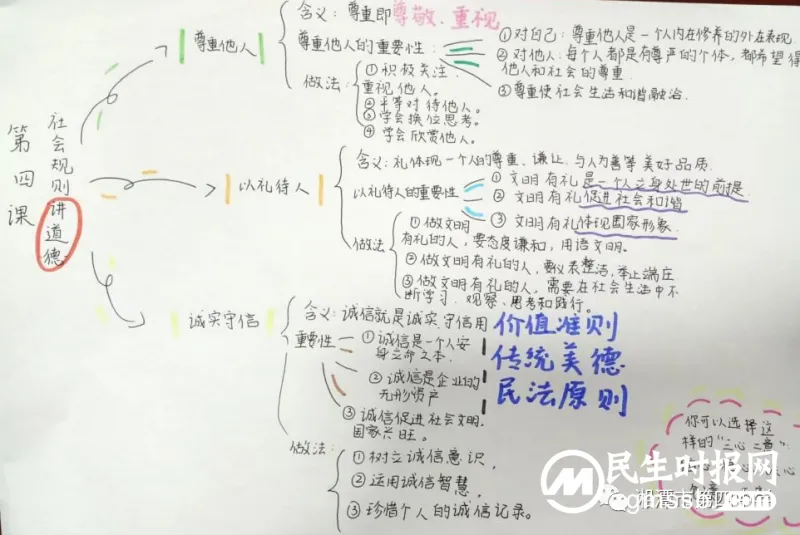 第四课
社会规则
讲道德
尊重他人
含义：尊重即尊敬、重视
尊重他人的重要性：
① 对自己：尊重他人是一个人内在修养的外在表现
② 对他人：每个人都是有尊严的个体，都希望得
他人和社会的尊重
③ 尊重使社会生活和谐融洽．
做法：
① 积极关注．
重视他人。
② 平等对待他人。
③ 学会换位思考。
④ 学会欣赏他人。
以礼待人
含义：礼体现一个人的尊重、谦让、与人为善等美好品质．
以礼待人的重要性
① 文明有礼是一个人立身处世的前提
② 文明有礼促进社会和谐
③ 文明有礼体现国家形象．
做法
① 做文明
有礼的人，要态度谦和，用语文明．
② 做文明有礼的人，要仪表整洁，举止端庄
③ 做文明有礼的人，需要在社会生活中不
断学习、观察、思考和践行。
诚实守信
含义：诚信就是诚实、守信用
重要性
① 诚信是一个人安
身立命之本．
② 诚信是企业的
无形资产
③ 诚信促进社会文明．
国家兴旺。
价值准则
传统美德
民法原则
做法：
① 树立诚信意识，
② 运用诚信智慧，
③ 珍惜个人的诚信记录。
你可以选择这
样的
民生时报网